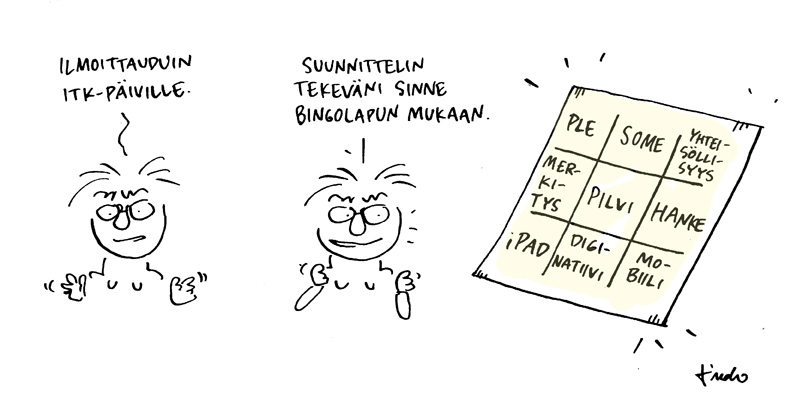 ILMOITTAUDUIN
ITK-PÄIVILLE.
SUUNNITTELIN
TEKEVÄNI SINNE
BINGOLAPUN MUKAAN.
PLE
SOME
YHTEI-
SÖLLI-
SYYS
MER-
KI-
TYS
PILVI
HANKE
iPAD
DIGI-
NATIIVI
MO-
BIILI